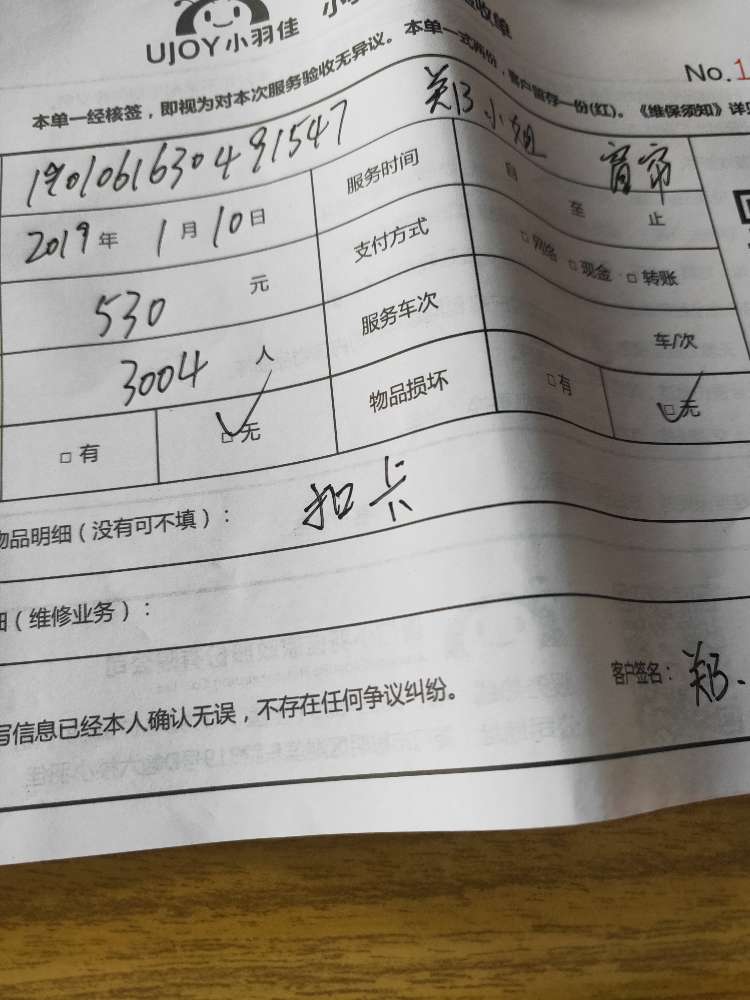 UJOY小羽佳 收单
No.1
本单一经核签，即视为对本次服务验收无异议。本单一式两份，客户留存一份(红)。《维保须知》详见
1901061630491547 郑小姐
2019年 1月10日 服务时间 自 至 止
530 元 支付方式 □网络 □现金 □转账
3004 人 服务车次 车/次
□有 □无 物品损坏 □有 □无
物品明细（没有可不填）： 扣卡
细（维修业务）：
写信息已经本人确认无误，不存在任何争议纠纷。 客户签名： 郑